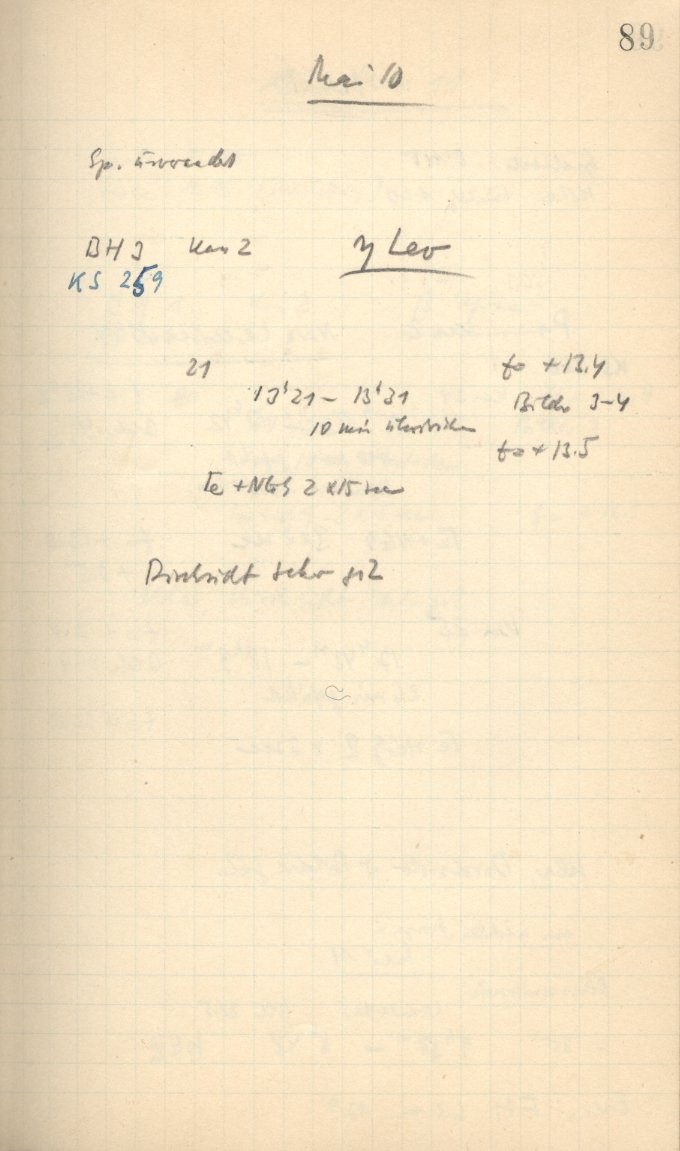 89
Mai 10
Sp.
BHJ Kam 2 η Leo
KS 259
21 to +13.4
13ʰ21 – 13ʰ31 Bilder 3-4
10 min
to +13.5
Fe + Neg 2 x 15 sec
Durchsicht sehr gut